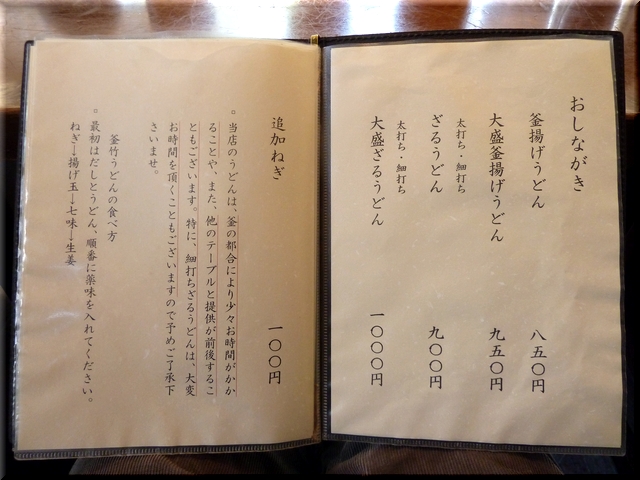 おしながき
釜揚げうどん 八五〇円
大盛釜揚げうどん 九五〇円
太打ち・細打ち
ざるうどん 九〇〇円
太打ち・細打ち
大盛ざるうどん 一〇〇〇円
追加ねぎ 一〇〇円
。当店のうどんは、釜の都合により少々お時間がかか
ることや、また、他のテーブルと提供が前後するこ
ともございます。特に、細打ちざるうどんは、大変
お時間を頂くこともございますので予めご了承下
さいませ。
釜竹うどんの食べ方
。最初はだしとうどん、順番に薬味を入れてください。
ねぎ→揚げ玉→七味→生姜